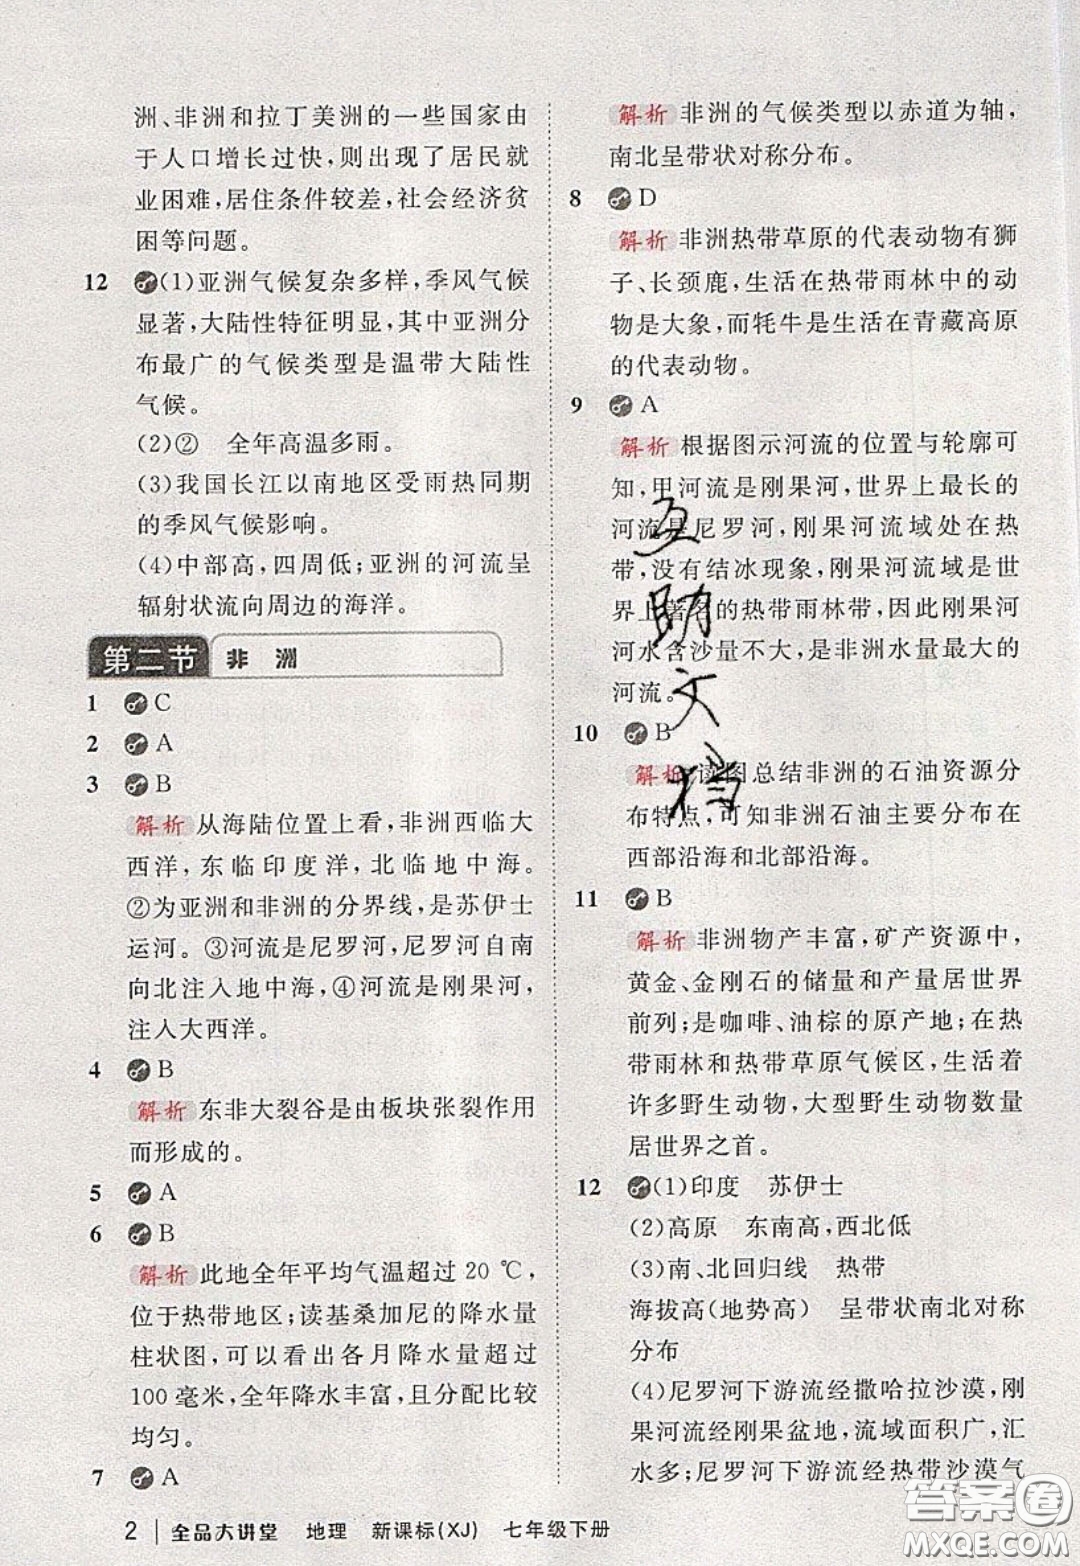 洲、非洲和拉丁美洲的一些国家由
于人口增长过快,则出现了居民就
业困难,居住条件较差,社会经济贫
困等问题。
12 (1)亚洲气候复杂多样,季风气候
显著,大陆性特征明显,其中亚洲分
布最广的气候类型是温带大陆性
气候。
(2)② 全年高温多雨。
(3)我国长江以南地区受雨热同期
的季风气候影响。
(4)中部高,四周低;亚洲的河流呈
辐射状流向周边的海洋。
第二节 非 洲
1 C
2 A
3 B
解析 从海陆位置上看,非洲西临大
西洋,东临印度洋,北临地中海。
②为亚洲和非洲的分界线,是苏伊士
运河。③河流是尼罗河,尼罗河自南
向北注入地中海,④河流是刚果河,
注入大西洋。
4 B
解析 东非大裂谷是由板块张裂作用
而形成的。
5 A
6 B
解析 此地全年平均气温超过 20 ℃,
位于热带地区;读基桑加尼的降水量
柱状图,可以看出各月降水量超过
100 毫米,全年降水丰富,且分配比较
均匀。
7 A
解析 非洲的气候类型以赤道为轴,
南北呈带状对称分布。
8 D
解析 非洲热带草原的代表动物有狮
子、长颈鹿,生活在热带雨林中的动
物是大象,而牦牛是生活在青藏高原
的代表动物。
9 A
解析 根据图示河流的位置与轮廓可
知,甲河流是刚果河,世界上最长的
河流是尼罗河,刚果河流域处在热
带,没有结冰现象,刚果河流域是世
界上著名的热带雨林带,因此刚果河
河水含沙量不大,是非洲水量最大的
河流。
10 B
解析 读图总结非洲的石油资源分
布特点,可知非洲石油主要分布在
西部沿海和北部沿海。
11 B
解析 非洲物产丰富,矿产资源中,
黄金、金刚石的储量和产量居世界
前列;是咖啡、油棕的原产地;在热
带雨林和热带草原气候区,生活着
许多野生动物,大型野生动物数量
居世界之首。
12 (1)印度 苏伊士
(2)高原 东南高,西北低
(3)南、北回归线 热带
海拔高(地势高) 呈带状南北对称
分布
(4)尼罗河下游流经撒哈拉沙漠,刚
果河流经刚果盆地,流域面积广,汇
水多;尼罗河下游流经热带沙漠气
互助文档
2 全品大讲堂 地理 新课标(XJ) 七年级下册
答案圈
MXQE.COM